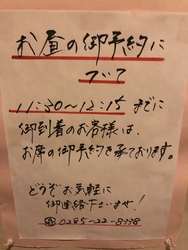 お昼の御予約に
ついて
11:30〜12:15 までに
御到着のお客様は、
お席の御予約を承ております。
どうぞお気軽に
御連絡下さいませ!
☎ 0285-22-8338